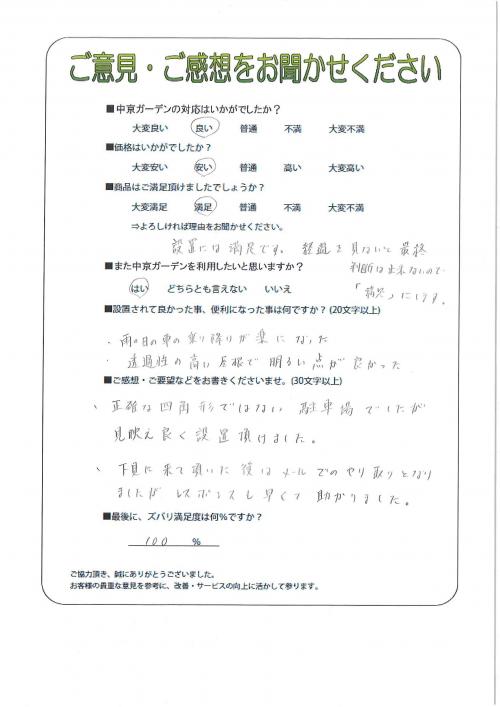 ご意見・ご感想をお聞かせください
■中京ガーデンの対応はいかがでしたか？
大変良い 良い 普通 不満 大変不満
■価格はいかがでしたか？
大変安い 安い 普通 高い 大変高い
■商品はご満足頂けましたでしょうか？
大変満足 満足 普通 不満 大変不満
⇒よろしければ理由をお聞かせください。
設置には満足です。経過を見ないと最終
判断は出来ないので
「満足」にします。
■また中京ガーデンを利用したいと思いますか？
はい どちらとも言えない いいえ
■設置されて良かった事、便利になった事は何ですか？(20文字以上)
・雨の日の車の乗り降りが楽になった
・透過性の高い屋根で明るい点が良かった
■ご感想・ご要望などをお書きくださいませ。(30文字以上)
、正確な四角形ではない駐車場でしたが
見映え良く設置頂けました。
、下見に来て頂いた後はメールでのやり取りとなり
ましたがレスポンスも早くて助かりました。
■最後に、ズバリ満足度は何％ですか？
100 ％
ご協力頂き、誠にありがとうございました。
お客様の貴重な意見を参考に、改善・サービスの向上に活かして参ります。